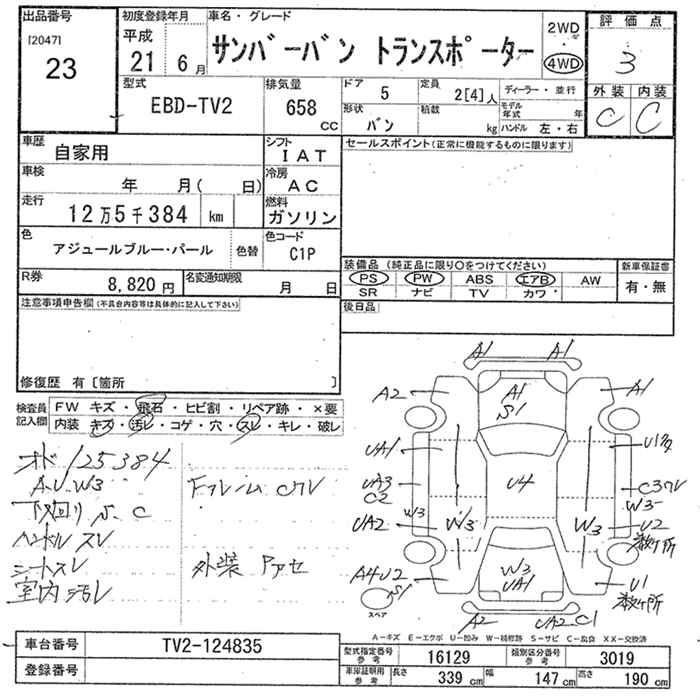 出品番号
[2047]
23
初度登録年月
平成
21年 6月
車名・グレード
サンバーバン トランスポーター
2WD
・
4WD
評価点
3
外装 内装
C C
型式
EBD-TV2
排気量
658
CC
ドア
5
定員
2[4]人
ディーラー・並行
形状
バン
積載
kg
モデル年式 年
ハンドル 左・右
車歴
自家用
シフト
IAT
車検
年 月( 日)
冷房
AC
走行
12万5千384 km
燃料
ガソリン
色
アジュールブルー・パール
色替
色コード
C1P
R券
8,820円
名変通知期限
月 日
セールスポイント(正常に機能するものに限ります)
装備品(純正品に限り○をつけてください)
PS PW ABS エアB AW
SR ナビ TV カワ
新車保証書
有・無
後日品
注意事項申告欄(不具合内容等は具体的に記入して下さい)
修復歴 有〔箇所
検査員記入欄
FW キズ・飛石・ヒビ割・リペア跡・×要
内装 キズ・汚レ・コゲ・穴・スレ・キレ・破レ
オド 125384
A.U.W3
下回り S.C
ハンドル スレ
シートスレ
室内汚レ
Fフレーム Cワレ
外装 Pアセ
A1 A1
A2 A1 S1 A1
UA1
UA3
C2
W3
UA2
W3
U4
W3
W3
U2
数ヶ所
A4U2
S1
W3
UA1
U1
数ヶ所
A2 UA2-C1
スペア
A-キズ E-エクボ U-凹み W-補修跡 S-サビ C-腐食 XX-交換済
車台番号
TV2-124835
登録番号
型式指定番号
参考
16129
類別区分番号
参考
3019
車庫証明用
参考
長さ
339 cm
幅
147 cm
高さ
190 cm